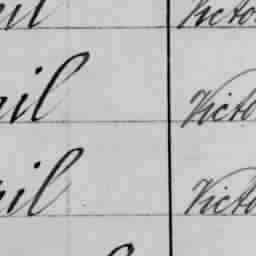 il Victo
il Victo
il Victo